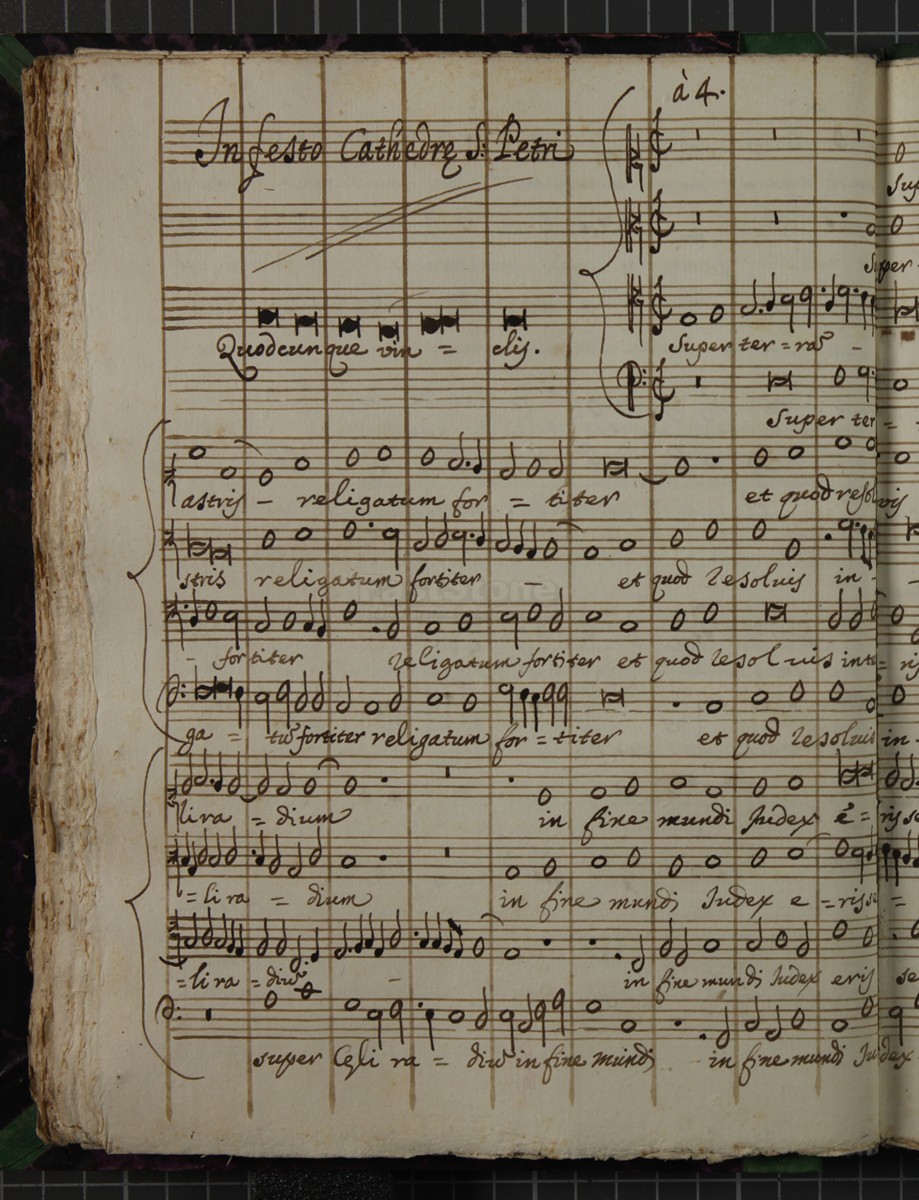 à 4.
In festo Cathedrę S. Petri
Sup
Super
Quodcunque vin = clis.
Super ter = ras̄ -
Super ter = -
astris - religatum for = titer et quod resolvis
stris religatum fortiter - et quod resoluis in - -
- fortiter religatum fortiter et quod resoluis inte = ris
ga = tū fortiter religatum for = titer et quod resoluis in -
li ra = dium in fine mundi Judex e = ris se
= li ra = dium in fine mundi Judex e = risse =
= li ra = diū - in fine mundi Judex eris se
super Cęli ra = diū in fine mundi in fine mundi Judex